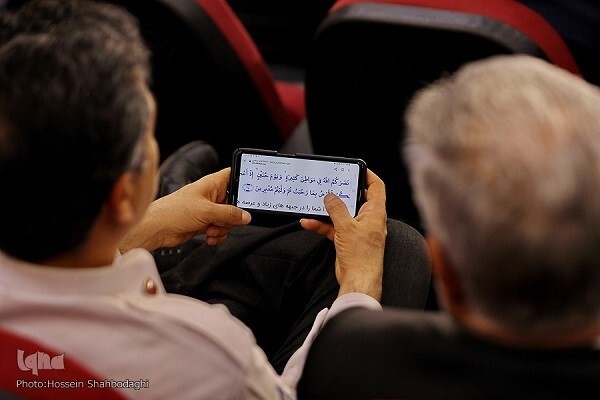 نَصَرَكُمُ اللهُ فِي مَوَاطِنَ كَثِيرَةٍ وَيَوْمَ حُنَيْنٍ إِذْ
بِمَا رَحُبَتْ ثُمَّ وَلَّيْتُمْ مُدْبِرِينَ
شما را در جبهه های زیاد و عرصه
iqna
Photo:Hossein Shahbodaghi